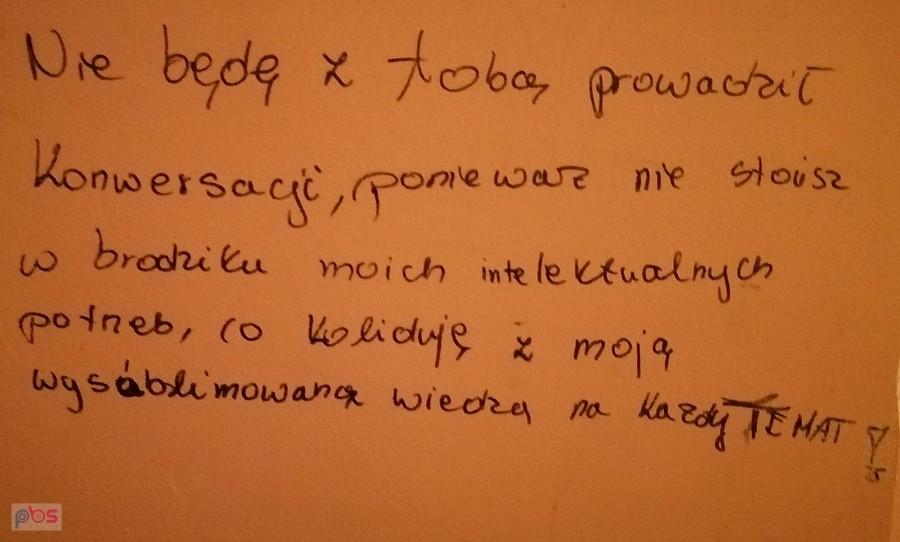 Nie będę z tobą prowadzić
Konwersacji, ponieważ nie stoisz
w brodziku moich intelektualnych
potrzeb, co koliduję z moją
wysublimowaną wiedzą na każdy TEMAT!
pbs